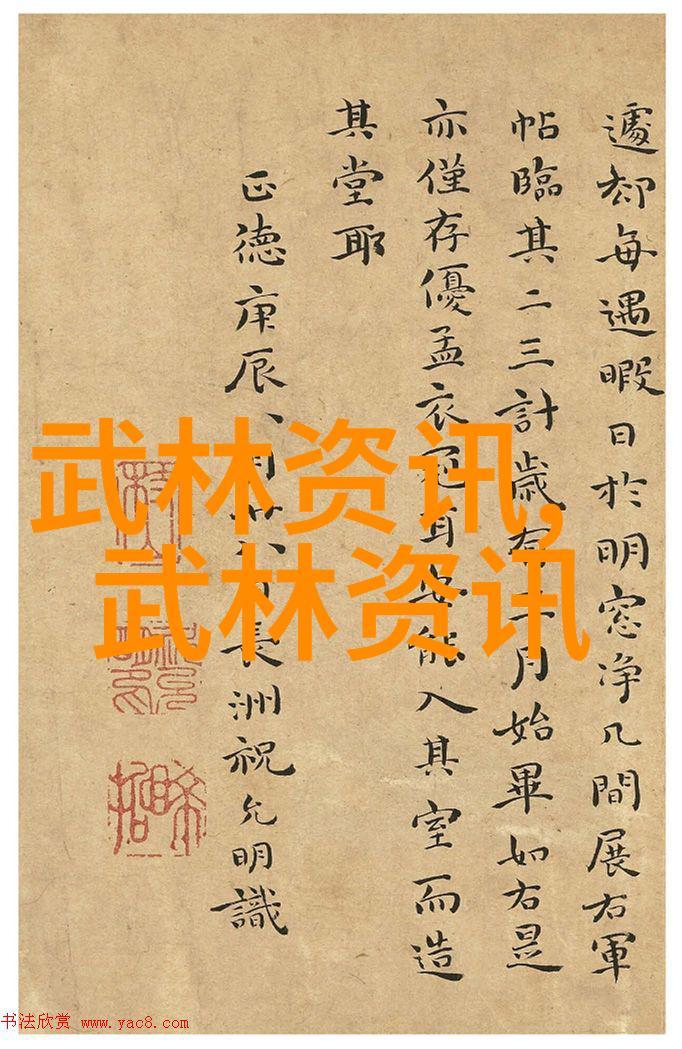 遽却每遇暇日於明窓净几間展右軍
帖臨其二三計歲有月始畢如右是
亦僅存優孟衣冠耳安能入其室而造
其堂耶
正德庚辰八月廿八日長洲祝允明識
武林资讯,
武林资讯
书法欣赏 www.yac8.com